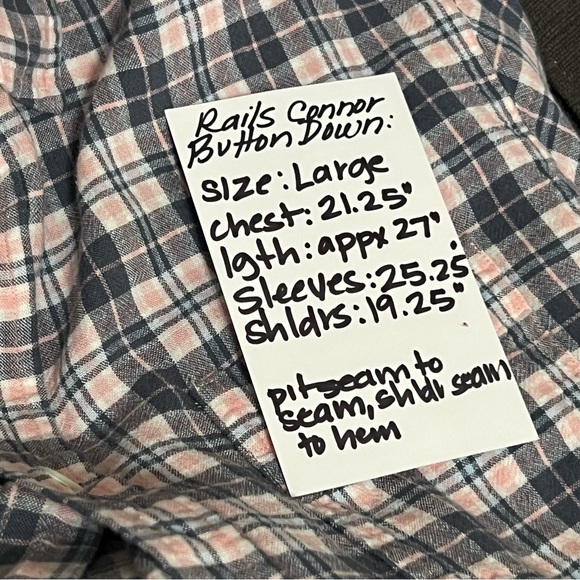 Rails Connor
Button Down:
size: Large
chest: 21.25"
lgth: appx 27"
Sleeves: 25.25"
shldrs: 19.25"
pit seam to
seam, shldr seam
to hem